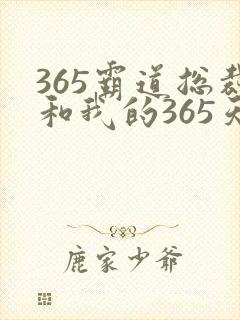 365霸道总裁
和我的365天
鹿家少爷